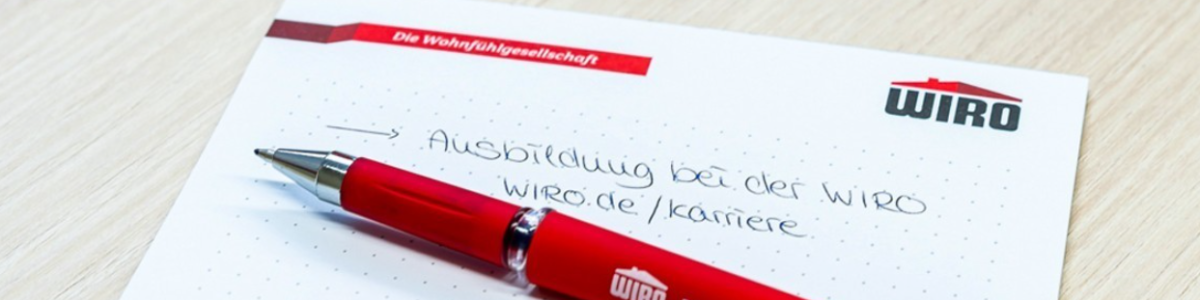 Die Wohnfühlgesellschaft
WIRO
→ Ausbildung bei der WIRO
WIRO.de/karriere
WIRO